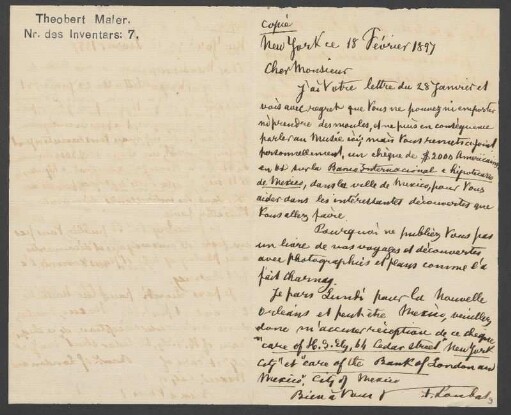 Theobert Maler.
Nr. des Inventars: 7.
copie
New York ce 18 Février 1897
Cher Monsieur
J'ai Votre lettre du 28 Janvier et
vois avec regret que Vous ne pouvez ni emporter
ni prendre des moules, et ne puis en conséquence
parler au Musée ici, mais Vous remets ci joint
personnellement, un chèque de $ 2000 Américains
en sur la Banco Internacional e hipotecario
de Mexico, dans la ville de Mexico, pour Vous
aider dans les intéressantes découvertes que
Vous allez faire
Pourquoi ne publiez Vous pas
un livre de vos voyages et découvertes
avec photographies et plans comme l'a
fait Charnay.
Je pars Lundi pour la Nouvelle
Orléans et peut être Mexico, veuillez
donc m'accuser réception de ce chèque
"care of H. S. Ely, 64 Cedar street" New York
City" et "care of the Bank of London and
Mexico", City of Mexico
Bien à Vous